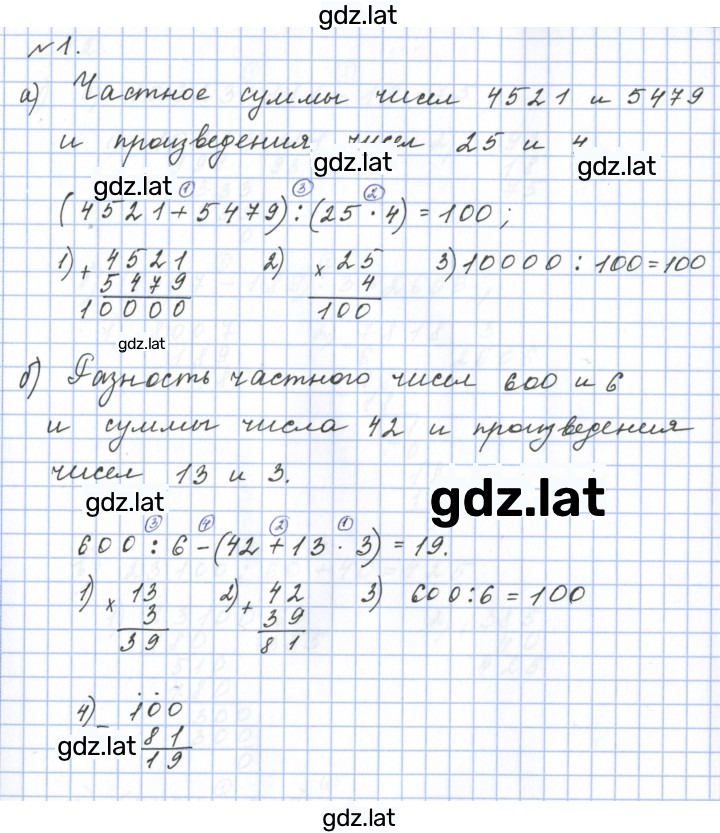 gdz.lat
№1.
а) Частное суммы чисел 4521 и 5479
и произведения чисел 25 и 4
gdz.lat gdz.lat
gdz.lat ① ③ ②
(4521+5479):(25·4)=100;
1) + 4521 2) × 25 3) 10000:100=100
5479 4
10000 100
gdz.lat
б) Разность частного чисел 600 и 6
и суммы числа 42 и произведения
чисел 13 и 3.
gdz.lat gdz.lat
③ ④ ② ①
600:6-(42+13·3)=19.
1) × 13 2) + 42 3) 600:6=100
3 39
39 81
4) - 100
gdz.lat 81
19
gdz.lat